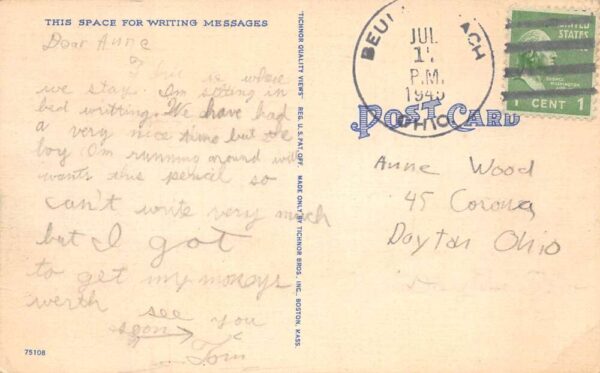 THIS SPACE FOR WRITING MESSAGES
Dear Anne
This is where
we stay. Am sitting in
bed writting. We have had
a very nice time but the
boy Om running around with
wants this pencil so
can't write very much
but I got
to get my moneys
worth
see you
soon
Tom
75108
TICHNOR QUALITY VIEWS REG. U.S. PAT. OFF. MADE ONLY BY TICHNOR BROS., INC., BOSTON, MASS.
BEUL ACH
JUL
17
P.M.
1945
OHIO
UNITED
STATES
1 CENT 1
POST CARD
Anne Wood
45 Corona
Dayton Ohio